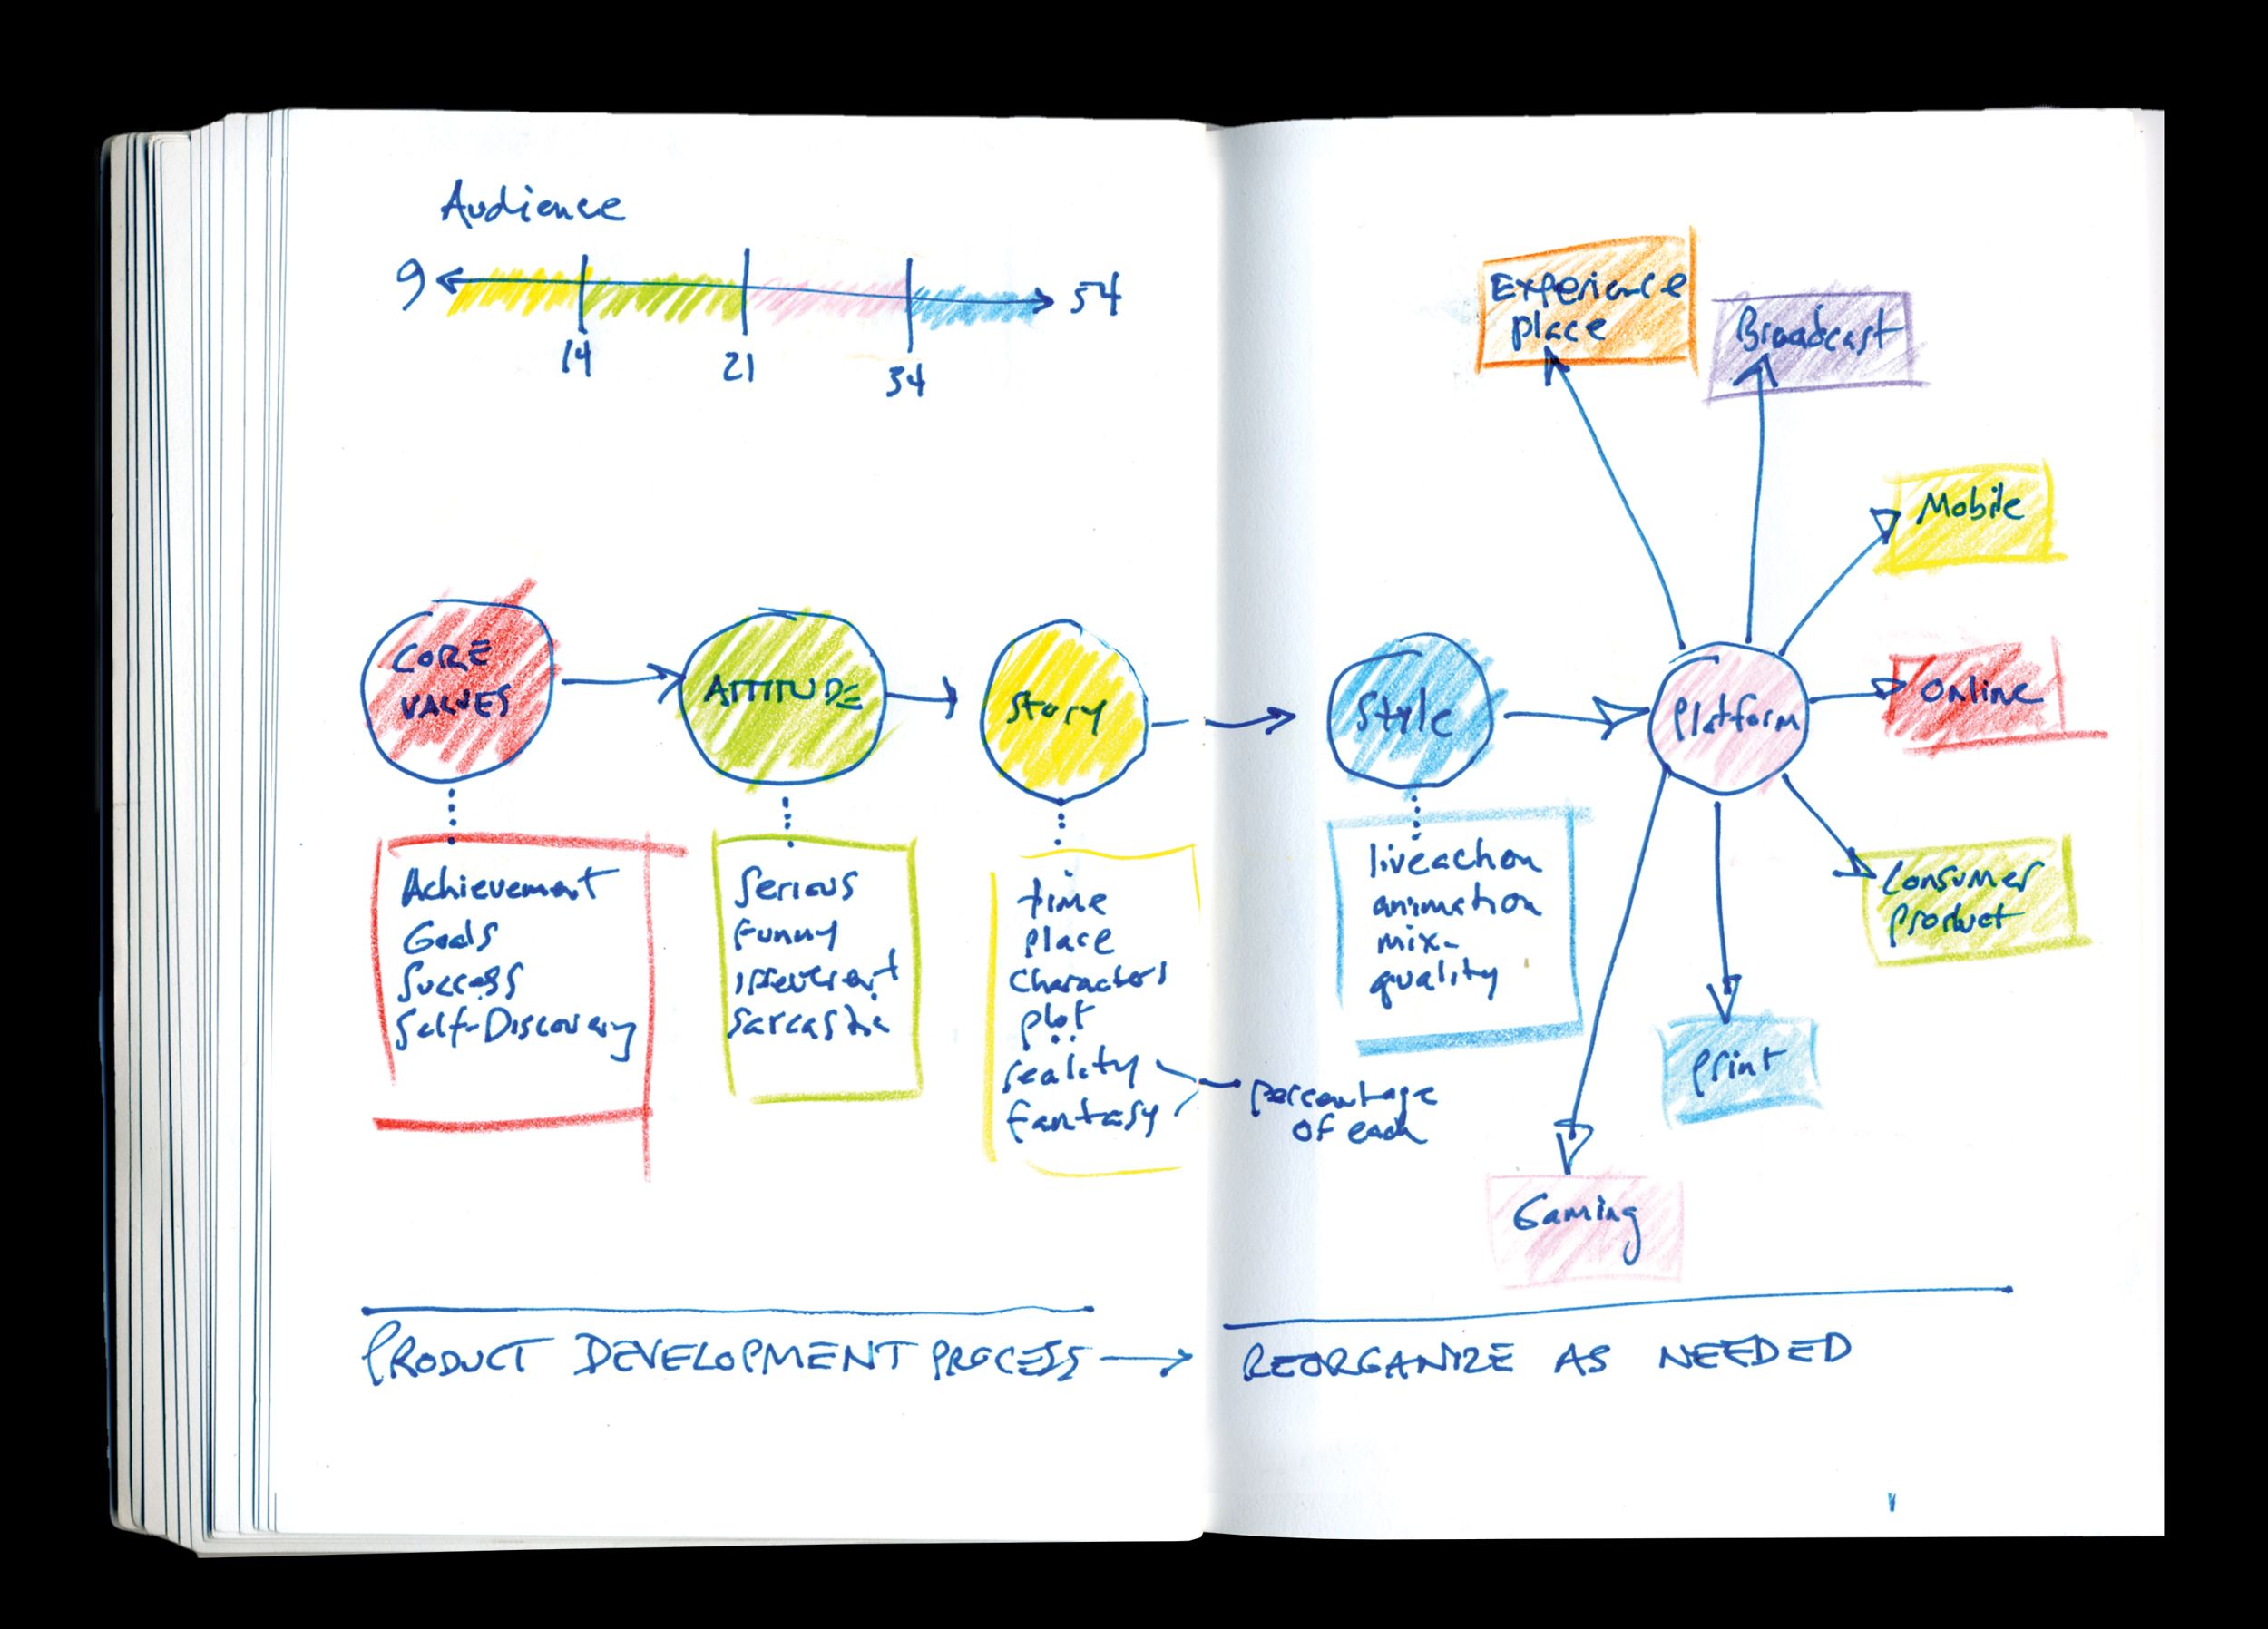 Audience
9
54
14
21
34
CORE
VALUES
ATTITUDE
Story
Achievement
Goals
Success
Self-Discovery
Serious
Funny
irreverent
Sarcastic
time
place
Characters
plot
reality
fantasy
percentage
of each
Style
liveaction
animation
mix-
quality
Platform
Experience
place
Broadcast
Mobile
Online
Consumer
Product
Print
Gaming
PRODUCT DEVELOPMENT PROCESS
REORGANIZE AS NEEDED